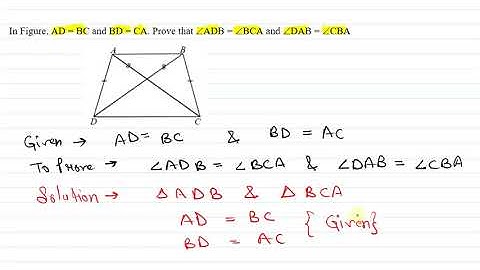 In Figure, AD = BC and BD = CA. Prove that ∠ADB = ∠BCA and ∠DAB = ∠CBA
A B
D C
Given → AD = BC & BD = AC
To Prove → ∠ADB = ∠BCA & ∠DAB = ∠CBA
Solution → △ADB & △BCA
AD = BC { Given}
BD = AC